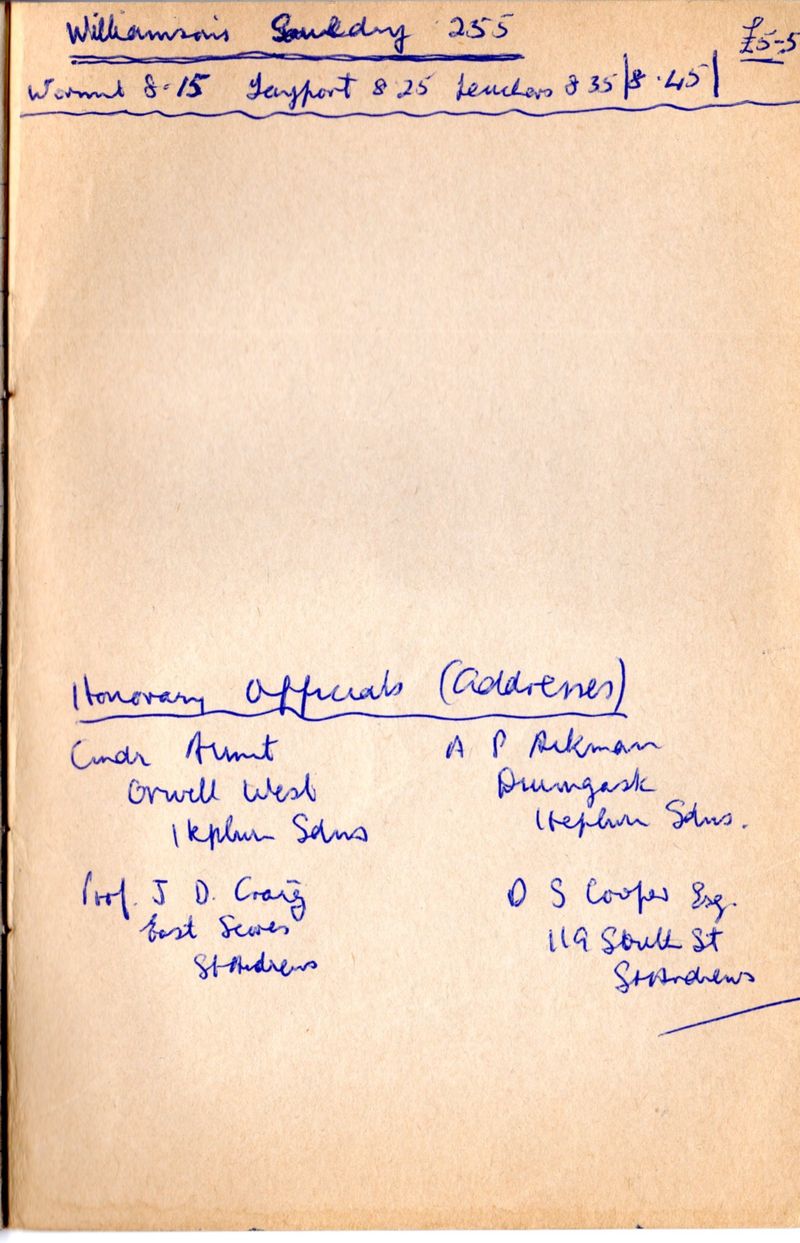 Williamson's Gauldry 255 £5-5
Wormit 8-15 Tayport 8 25 Leuchars 8 35 | 8.45 |
Honorary Officials (Addresses)
Cmdr
Orwell West
Hepburn Gdns
A P Aikman
Drumgask
Hepburn Gdns.
Prof. J D. Craig
East Scores
St Andrews
D S Cooper Esq.
119 South St
St Andrews